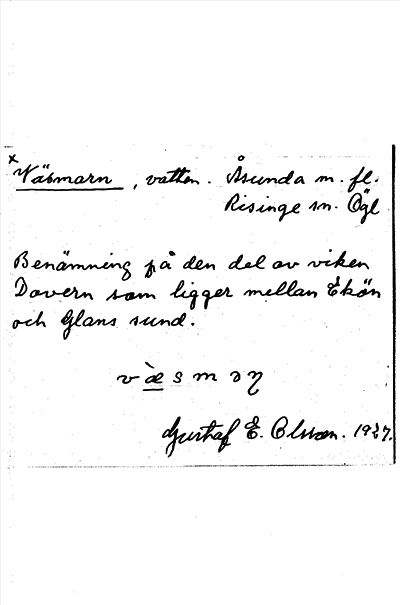 x Väsmarn, vatten. Åsunda m. fl.
Risinge sn. Ögl
Benämning på den del av viken
Dovern som ligger mellan Ekön
och Glans sund.
v æ̀ s m ə ɳ
Gustaf E. Olsson. 1927.